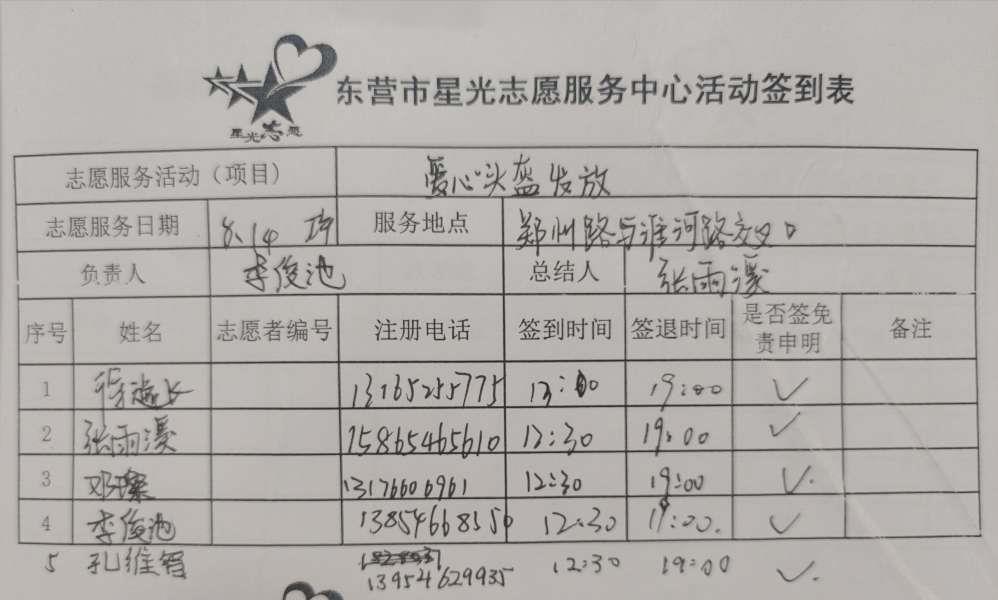 星光志愿
东营市星光志愿服务中心活动签到表
志愿服务活动（项目） 爱心头盔发放
志愿服务日期 8.14 服务地点 郑州路与淮河路交叉口
负责人 李俊池 总结人 张雨濛
序号 姓名 志愿者编号 注册电话 签到时间 签退时间 是否签免责申明 备注
1 13165255775 19:00 ✓
2 张雨濛 15865465610 12:30 19:00 ✓
3 邓璨 13176606961 12:30 19:00 ✓
4 李俊池 12:30 19:00 ✓
5 孔维智 13954629935 12:30 19:00 ✓